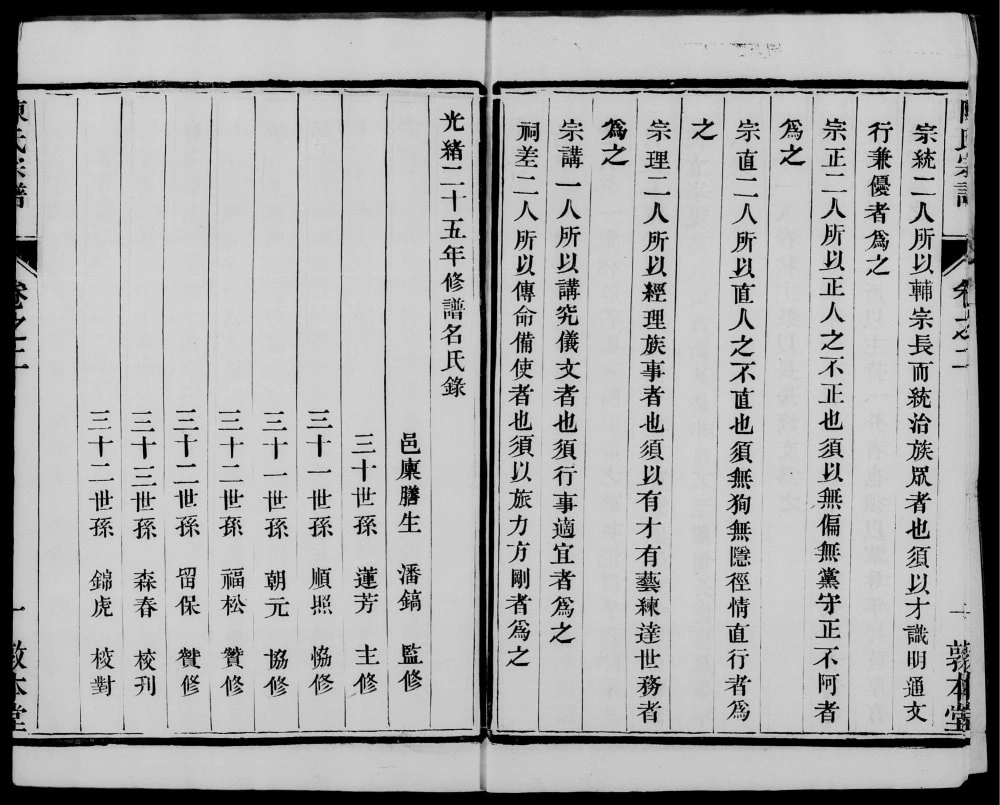 陳氏宗譜
卷之二
敦本堂
宗統二人所以輔宗長而統治族眾者也須以才識明通文
行兼優者爲之
宗正二人所以正人之不正也須以無偏無黨守正不阿者
爲之
宗直二人所以直人之不直也須無狥無隱徑情直行者爲
之
宗理二人所以經理族事者也須以有才有藝練達世務者
爲之
宗講一人所以講究儀文者也須行事適宜者爲之
祠差二人所以傳命備使者也須以旅力方剛者爲之
光緒二十五年修譜名氏錄
邑廩膳生 潘鎬 監修
三十世孫 蓮芳 主修
三十一世孫 順照 恊修
三十一世孫 朝元 協修
三十二世孫 福松 贊修
三十二世孫 留保 贊修
三十三世孫 森春 校刋
三十二世孫 錦虎 校對
陳氏宗譜
卷之二
敦本堂